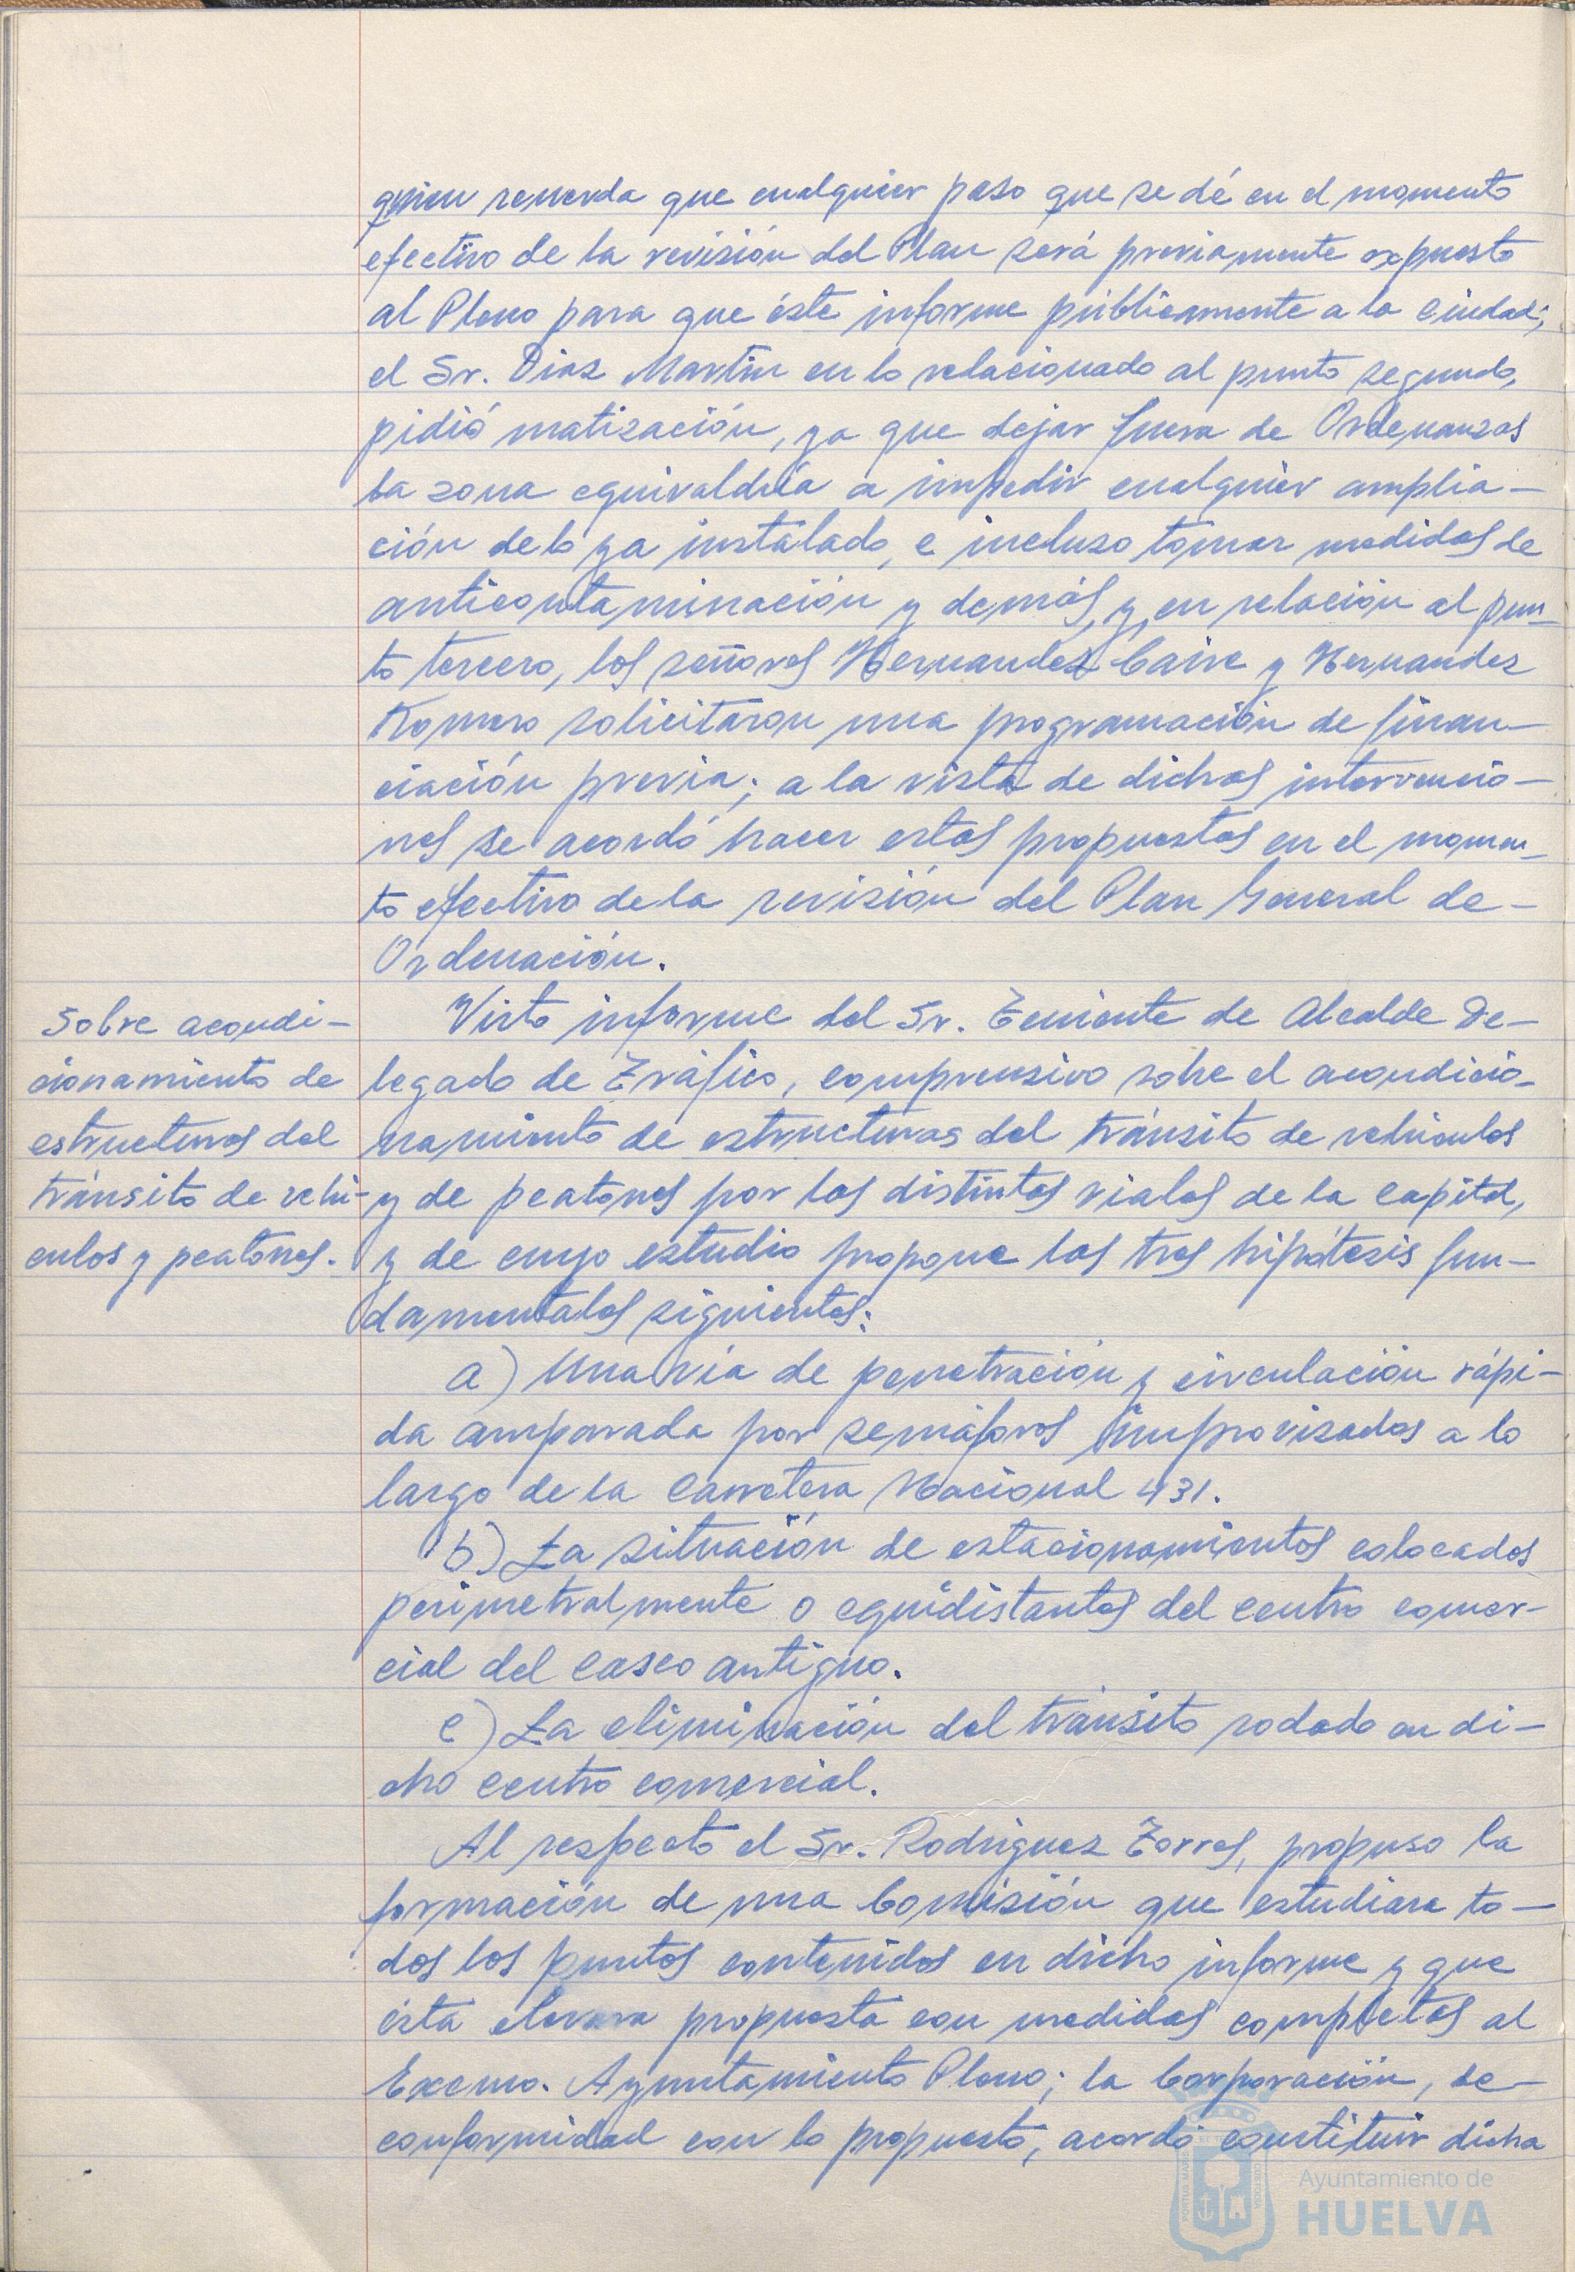 quien recuerda que cualquier paso que se dé en el momento
efectivo de la revisión del Plan será previamente expuesto
al Pleno para que éste informe públicamente a la Ciudad;
el Sr. Diaz Martín en lo relacionado al punto segundo,
pidió matización, ya que dejar fuera de Ordenanzas
la zona equivaldría a impedir cualquier amplia-
ción de lo ya instalado, e incluso tomar medidas de
anticontaminación y demás, y, en relación al pun-
to tercero, los señores Hernandez Caire y Hernandez
Romero solicitaron una programación de finan-
ciación previa; a la vista de dichas intervencio-
nes se acordó hacer estas propuestas en el momen-
to efectivo de la revisión del Plan General de-
Ordenación.
Sobre acondi-
cionamiento de
estructuras del
tránsito de vehi-
culos y peatones.
Visto informe del Sr. Teniente de Alcalde De-
legado de Tráfico, comprensivo sobre el acondicio-
namiento de estructuras del tránsito de vehiculos
y de peatones por las distintas viales de la Capital,
y de cuyo estudio propone las tres hipótesis fun-
damentales siguientes:
a) Una vía de penetración y circulación rápi-
da amparada por semáforos improvisados a lo
largo de la Carretera Nacional 431.
b) La situación de estacionamientos colocados
perimetralmente o equidistantes del centro comer-
cial del casco antiguo.
c) La eliminación del tránsito rodado en di-
cho centro comercial.
Al respecto el Sr. Rodriguez Torres, propuso la
formación de una Comisión que estudiara to-
dos los puntos contenidos en dicho informe y que
ésta elevara propuesta con medidas completas al
Excmo. Ayuntamiento Pleno; la Corporación, de-
conformidad con lo propuesto, acordó constituir dicha
Ayuntamiento de
HUELVA